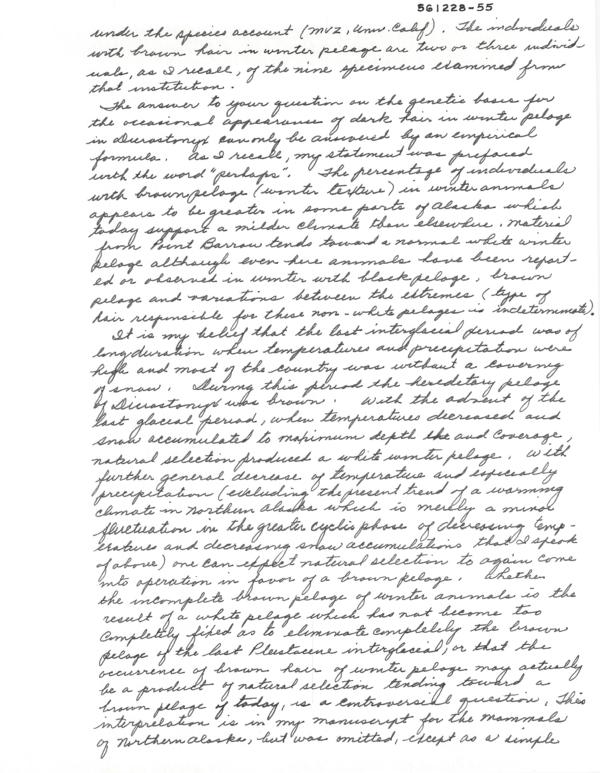 561228-55
under the species account (MVZ, Univ. Calif). The individuals
with brown hair in winter pelage are two or three individ-
uals, as I recall, of the nine specimens examined from
that institution.
The answer to your question on the genetic basis for
the occasional appearance of dark hair in winter pelage
in Dicrostonyx can only be answered by an empirical
formula. As I recall, my statement was prefaced
with the word "perhaps". The percentage of individuals
with brown pelage (winter texture) in winter animals
appears to be greater in some parts of Alaska which
today support a milder climate than elsewhere. Material
from Point Barrow tends toward a normal white winter
pelage although even here animals have been report-
ed or observed in winter with black pelage, brown
pelage and variations between the extremes (type of
hair responsible for these non-white pelages is indeterminate).
It is my belief that the last interglacial period was of
long duration when temperatures and precipitation were
high and most of the country was without a covering
of snow. During this period the hereditary pelage
of Dicrostonyx was brown. With the advent of the
last glacial period, when temperatures decreased and
snow accumulated to maximum depth and coverage,
natural selection produced a white winter pelage. With
further general decrease of temperature and especially
precipitation (excluding the present trend of a warming
climate in northern Alaska which is merely a minor
fluctuation in the greater cyclic phase of decreasing temp-
eratures and decreasing snow accumulations that I speak
of above) one can expect natural selection to again come
into operation in favor of a brown pelage. Whether
the incomplete brown pelage of winter animals is the
result of a white pelage which has not become too
completely fixed as to eliminate completely the brown
pelage of the last Pleistocene interglacial, or that the
occurrence of brown hair of winter pelage may actually
be a product of natural selection tending toward a
brown pelage of today, is a controversial question. This
interpretation is in my manuscript for the mammals
of Northern Alaska, but was omitted, except as a simple